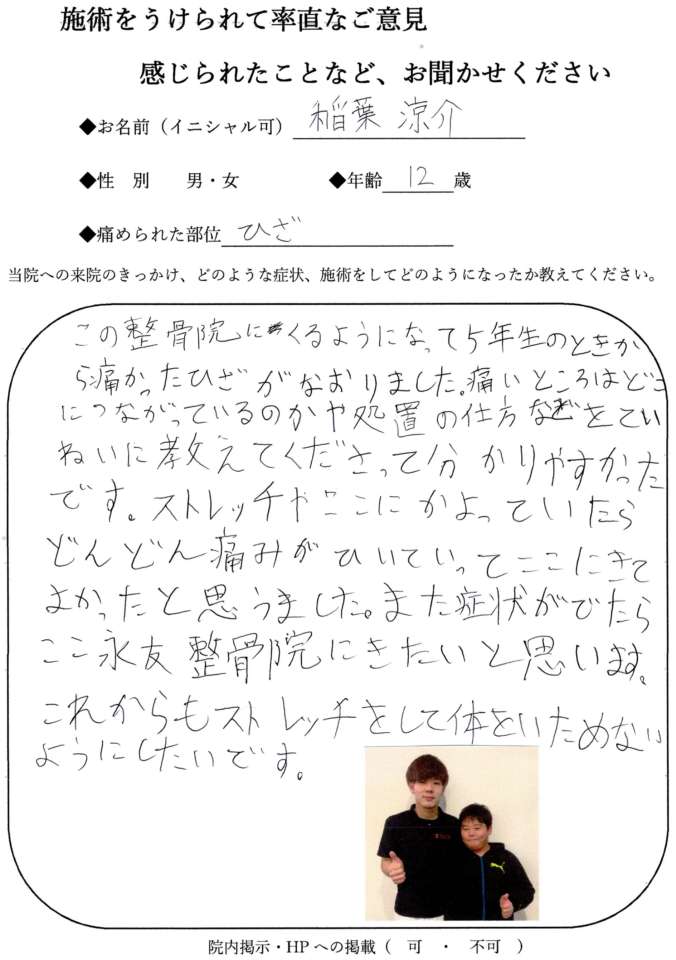 施術をうけられて率直なご意見
感じられたことなど、お聞かせください
◆お名前（イニシャル可） 稲葉 涼介
◆性 別 男・女 ◆年齢 12 歳
◆痛められた部位 ひざ
当院への来院のきっかけ、どのような症状、施術をしてどのようになったか教えてください。
この整骨院にくるようになって5年生のときか
ら痛かったひざがなおりました。痛いところはどこ
につながっているのかや処置の仕方などをてい
ねいに教えてくださって分かりやすかった
です。ストレッチやここにかよっていたら
どんどん痛みがひいていってここにきて
よかったと思うました。また症状がでたら
ここ永友整骨院にきたいと思います。
これからもストレッチをして体をいためない
ようにしたいです。
院内掲示・HPへの掲載（ 可 ・ 不可 ）